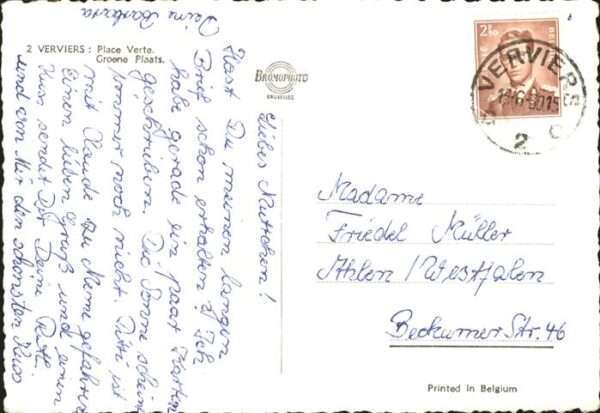 2 VERVIERS : Place Verte.
Groene Plaats.
BROMOPHOTO
BRUXELLES
BELG
2F50
VERVIERS
2
C
Liebes Muttchen!
Hast Du meinen langen
Brief schon erhalten? Ich
habe gerade ein paar Karten
geschrieben. Die Sonne scheint
immer noch nicht. Ruth ist
mit Claude zu Meme gefahren.
Einen lieben Gruß und einen
Kuss sendet Dir Deine Ruth
und von Mir den schönsten Kuss
Deine Barbara
Madame
Friedel Müller
Ahlen/Westfalen
Beckumer Str. 46
Printed in Belgium